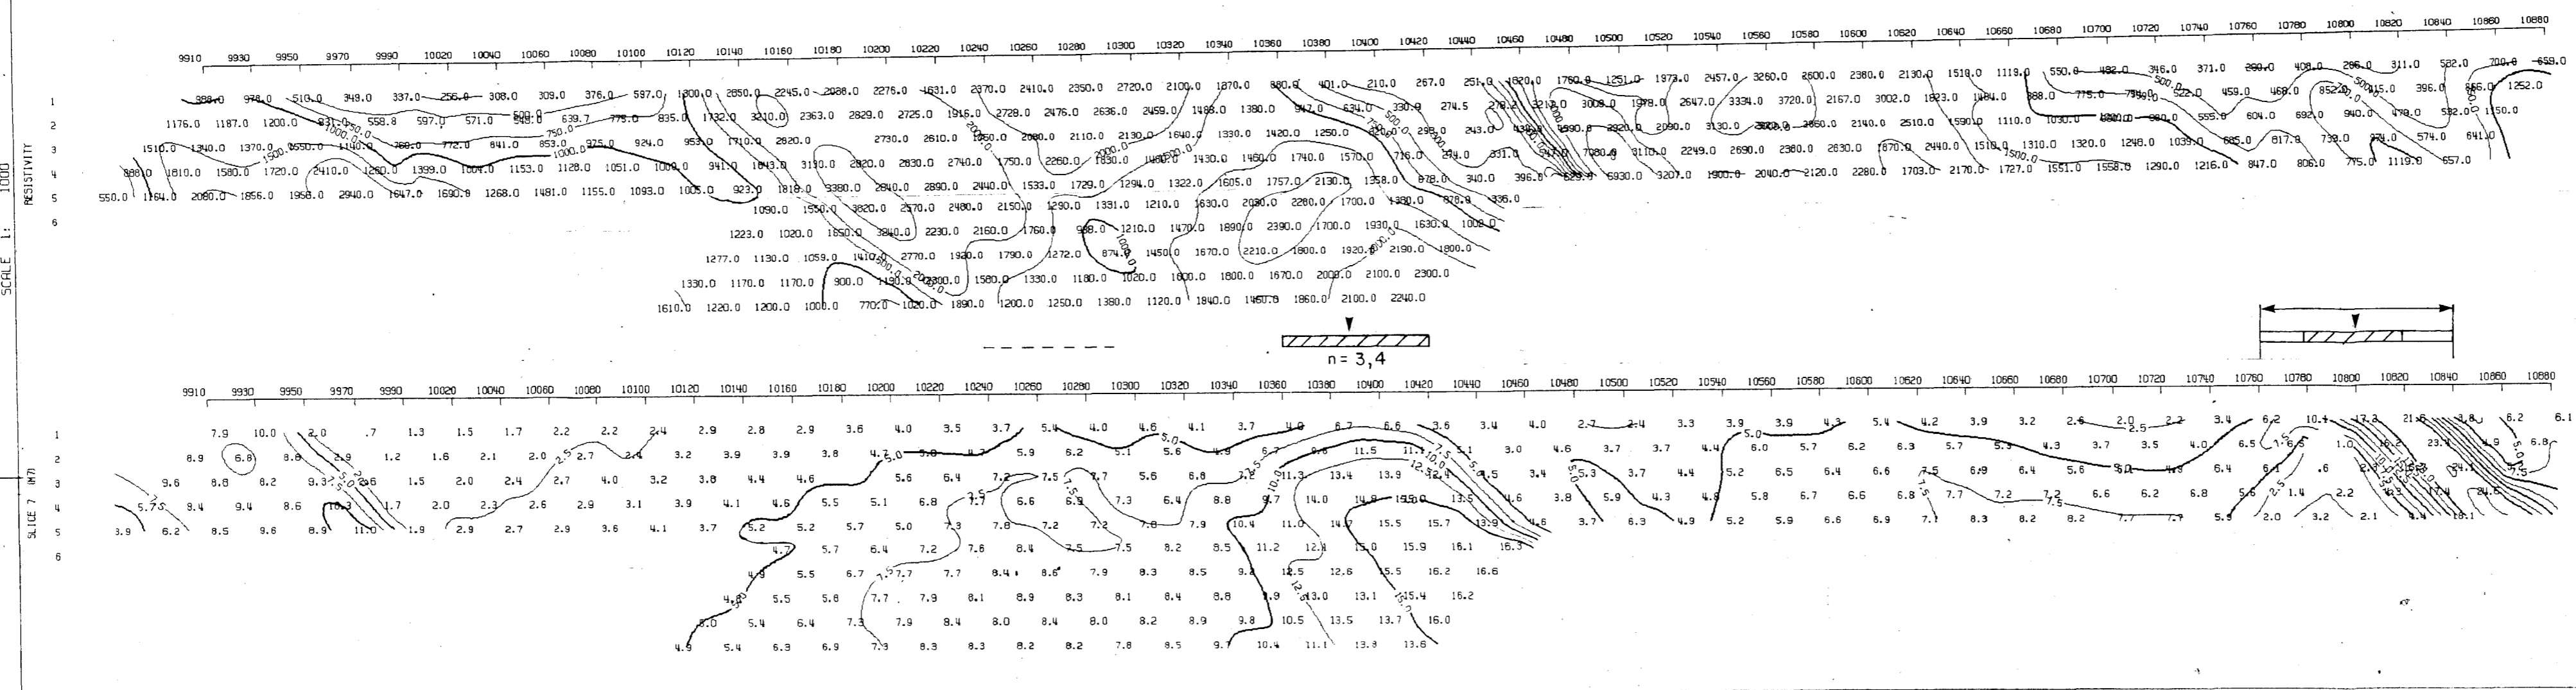 9910 9930 9950 9970 9990 10020 10040 10060 10080 10100 10120 10140 10160 10180 10200 10220 10240 10260 10280 10300 10320 10340 10360 10380 10400 10420 10440 10460 10480 10500 10520 10540 10560 10580 10600 10620 10640 10660 10680 10700 10720 10740 10760 10780 10800 10820 10840 10860 10880
SCALE 1: 1000
RESISTIVITY
1 978.0 510.0 349.0 337.0 256.0 308.0 309.0 376.0 597.0 1300.0 2850.0 2245.0 2088.0 2276.0 1631.0 2370.0 2410.0 2350.0 2720.0 2100.0 1370.0 880.0 401.0 210.0 267.0 251.0 1820.0 1760.0 1251.0 1973.0 2457.0 3260.0 2600.0 2380.0 2130.0 1510.0 1119.0 550.0 482.0 346.0 371.0 408.0 286.0 311.0 532.0 700.0 659.0
2 1176.0 1187.0 1200.0 558.8 597.0 571.0 639.7 775.0 835.0 1732.0 3210.0 2363.0 2829.0 2725.0 1916.0 2728.0 2476.0 2636.0 2459.0 1488.0 1380.0 947.0 634.0 330.0 274.5 3008.0 1978.0 2647.0 3334.0 3720.0 2167.0 3002.0 1823.0 1484.0 888.0 775.0 522.0 459.0 468.0 852.0 396.0 1252.0
3 1510.0 1340.0 1370.0 1140.0 772.0 841.0 853.0 975.0 924.0 953.0 1710.0 2820.0 2730.0 2610.0 2080.0 2110.0 2130.0 1640.0 1330.0 1420.0 1250.0 243.0 2920.0 2090.0 3130.0 2140.0 2510.0 1590.0 1110.0 1030.0 555.0 604.0 692.0 940.0 479.0 532.0 1150.0
4 1810.0 1580.0 1720.0 2410.0 1260.0 1399.0 1004.0 1153.0 1128.0 1051.0 1000.0 941.0 1643.0 3130.0 2820.0 2830.0 2740.0 1750.0 2260.0 1830.0 1430.0 1460.0 1740.0 1570.0 716.0 331.0 3110.0 2249.0 2690.0 2380.0 2630.0 1870.0 2440.0 1510.0 1310.0 1320.0 1248.0 1039.0 685.0 817.0 739.0 574.0 641.0
5 550.0 1164.0 2080.0 1856.0 1956.0 2940.0 1647.0 1690.0 1268.0 1481.0 1155.0 1093.0 1005.0 923.0 1818.0 3380.0 2840.0 2890.0 2440.0 1533.0 1729.0 1294.0 1322.0 1605.0 1757.0 2130.0 1358.0 878.0 340.0 396.0 829.0 6930.0 3207.0 1900.0 2040.0 2120.0 2280.0 1703.0 2170.0 1727.0 1551.0 1558.0 1290.0 1216.0 847.0 806.0 775.0 1119.0 657.0
6 1090.0 1550.0 3820.0 2570.0 2480.0 2150.0 1290.0 1331.0 1210.0 1630.0 2030.0 2280.0 1700.0 1380.0 878.0 336.0
1223.0 1020.0 1650.0 3240.0 2230.0 2160.0 1760.0 988.0 1210.0 1470.0 1890.0 2390.0 1700.0 1930.0 1630.0 1008.0
1277.0 1130.0 1059.0 1410.0 2770.0 1920.0 1790.0 1272.0 874.0 1450.0 1670.0 2210.0 1800.0 1920.0 2190.0 1800.0
1330.0 1170.0 1170.0 900.0 1190.0 1580.0 1330.0 1180.0 1020.0 1600.0 1800.0 1670.0 2000.0 2100.0 2300.0
1610.0 1220.0 1200.0 1000.0 770.0 1020.0 1890.0 1200.0 1250.0 1380.0 1120.0 1840.0 1460.0 1860.0 2100.0 2240.0
n = 3,4
9910 9930 9950 9970 9990 10020 10040 10060 10080 10100 10120 10140 10160 10180 10200 10220 10240 10260 10280 10300 10320 10340 10360 10380 10400 10420 10440 10460 10480 10500 10520 10540 10560 10580 10600 10620 10640 10660 10680 10700 10720 10740 10760 10780 10800 10820 10840 10860 10880
SLICE 7 (M7)
1 7.9 10.0 2.0 .7 1.3 1.5 1.7 2.2 2.2 2.4 2.9 2.8 2.9 3.6 4.0 3.5 3.7 5.4 4.0 4.6 4.1 3.7 4.0 6.7 6.6 3.6 3.4 4.0 2.7 2.4 3.3 3.9 3.9 4.3 5.4 4.2 3.9 3.2 2.6 2.0 2.2 3.4 6.2 10.4 17.2 21.6 3.8 6.2 6.1
2 8.9 6.8 8.8 2.9 1.2 1.6 2.1 2.0 2.7 2.4 3.2 3.9 3.9 3.8 4.7 5.0 4.7 5.9 6.2 5.1 5.6 4.9 6.7 9.6 11.5 11.1 5.1 3.0 4.6 3.7 3.7 4.4 6.0 5.8 6.2 6.3 5.7 5.3 4.3 3.7 3.5 4.0 6.5 6.5 1.0 16.2 23.4 4.9 6.8
3 9.6 8.8 8.2 9.3 1.5 2.0 2.4 2.7 4.0 3.2 3.8 4.4 4.6 5.6 6.4 7.2 7.5 7.7 5.6 6.8 7.2 11.3 13.4 13.9 12.4 4.5 3.4 5.3 3.7 4.4 5.2 6.5 6.4 6.2 7.5 6.9 6.4 5.6 5.0 4.9 6.4 6.1 .6 24.1
4 5.7 9.4 9.4 8.6 10.3 1.7 2.0 2.3 2.6 2.9 3.1 3.9 4.1 4.6 5.5 5.1 6.8 7.7 6.6 6.9 7.3 6.4 8.8 9.7 14.0 14.8 15.0 13.5 4.6 3.8 5.9 4.3 4.8 5.8 6.7 6.6 6.8 7.7 7.2 7.2 6.6 6.2 6.8 5.6 1.4 2.2 17.4 24.6
5 3.9 6.2 8.5 9.6 8.9 11.0 1.9 2.9 2.7 2.9 3.6 4.1 3.7 5.2 5.2 5.7 5.0 7.3 7.8 7.2 7.2 7.8 7.9 10.4 11.0 14.7 15.5 15.7 13.9 4.6 3.7 6.3 4.9 5.2 5.9 6.6 6.9 7.1 8.3 8.2 8.2 7.7 7.7 5.9 2.0 3.2 2.1 4.4 18.1
6 4.7 5.7 6.4 7.2 7.6 8.4 7.5 7.5 8.2 8.5 11.2 12.4 15.0 15.9 16.1 16.3
4.9 5.5 6.7 7.7 7.7 8.4 8.6 7.9 8.3 8.5 9.2 12.5 12.6 15.5 16.2 16.6
4.8 5.5 5.8 7.7 7.9 8.1 8.9 8.3 8.1 8.4 8.8 9.9 13.0 13.1 15.4 16.2
5.0 5.4 6.4 7.3 7.9 8.4 8.0 8.4 8.0 8.2 8.9 9.8 10.5 13.5 13.7 16.0
4.9 5.4 6.3 6.9 7.3 8.3 8.3 8.2 8.2 7.8 8.5 9.7 10.4 11.1 13.8 13.6